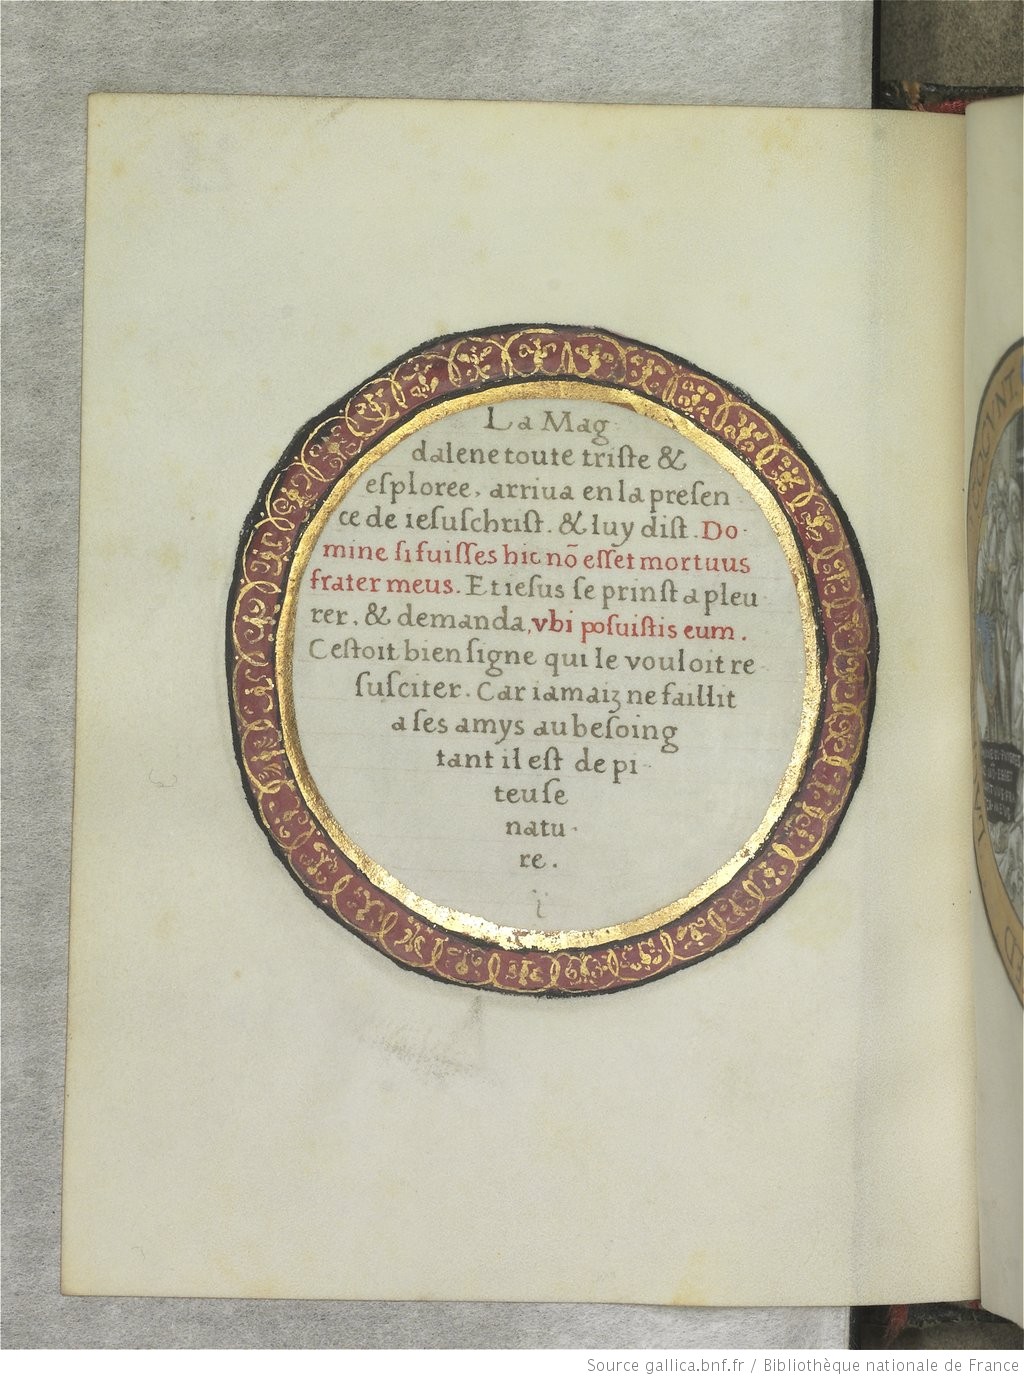 La Mag
dalene toute triſte &
eſploree, arriua en la preſen
ce de ieſuſchriſt. & luy diſt. Do-
mine ſi fuiſſes hic nõ eſſet mortuus
frater meus. Et ieſus ſe prinſt a pleu
rer. & demanda, vbi poſuiſtis eum.
Ceſtoit bien ſigne qui le vouloit re
ſuſciter. Car iamaiz ne faillit
a ſes amys au beſoing
tant il eſt de pi-
teuſe
natu-
re.
Source gallica.bnf.fr / Bibliothèque nationale de France